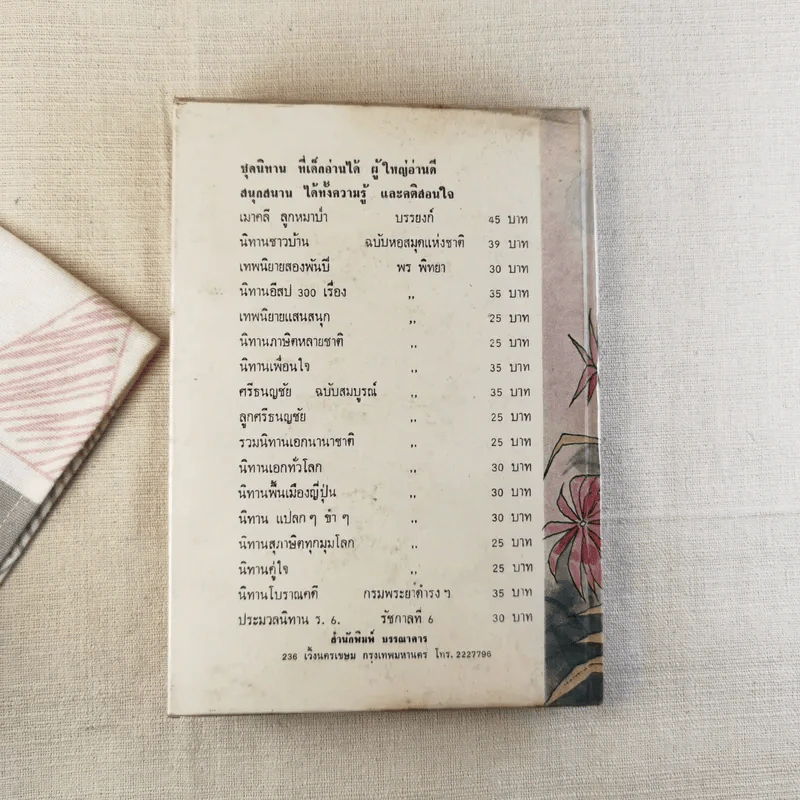 ชุดนิทาน ที่เด็กอ่านได้ ผู้ใหญ่อ่านดี
สนุกสนาน ได้ทั้งความรู้ และคติสอนใจ
เมาคลี ลูกหมาป่า บรรยงก์ 45 บาท
นิทานชาวบ้าน ฉบับหอสมุดแห่งชาติ 39 บาท
เทพนิยายสองพันปี พร พิทยา 30 บาท
นิทานอีสป 300 เรื่อง ,, 35 บาท
เทพนิยายแสนสนุก ,, 25 บาท
นิทานภาษิตหลายชาติ ,, 25 บาท
นิทานเพื่อนใจ ,, 35 บาท
ศรีธนญชัย ฉบับสมบูรณ์ ,, 35 บาท
ลูกศรีธนญชัย ,, 25 บาท
รวมนิทานเอกนานาชาติ ,, 25 บาท
นิทานเอกทั่วโลก ,, 30 บาท
นิทานพื้นเมืองญี่ปุ่น ,, 30 บาท
นิทาน แปลก ๆ ขำ ๆ ,, 30 บาท
นิทานสุภาษิตทุกมุมโลก ,, 25 บาท
นิทานคู่ใจ ,, 25 บาท
นิทานโบราณคดี กรมพระยาดำรงฯ 35 บาท
ประมวลนิทาน ร. 6. รัชกาลที่ 6 30 บาท
สำนักพิมพ์ บรรณาคาร
236 เวิ้งนครเขษม กรุงเทพมหานคร โทร. 2227796